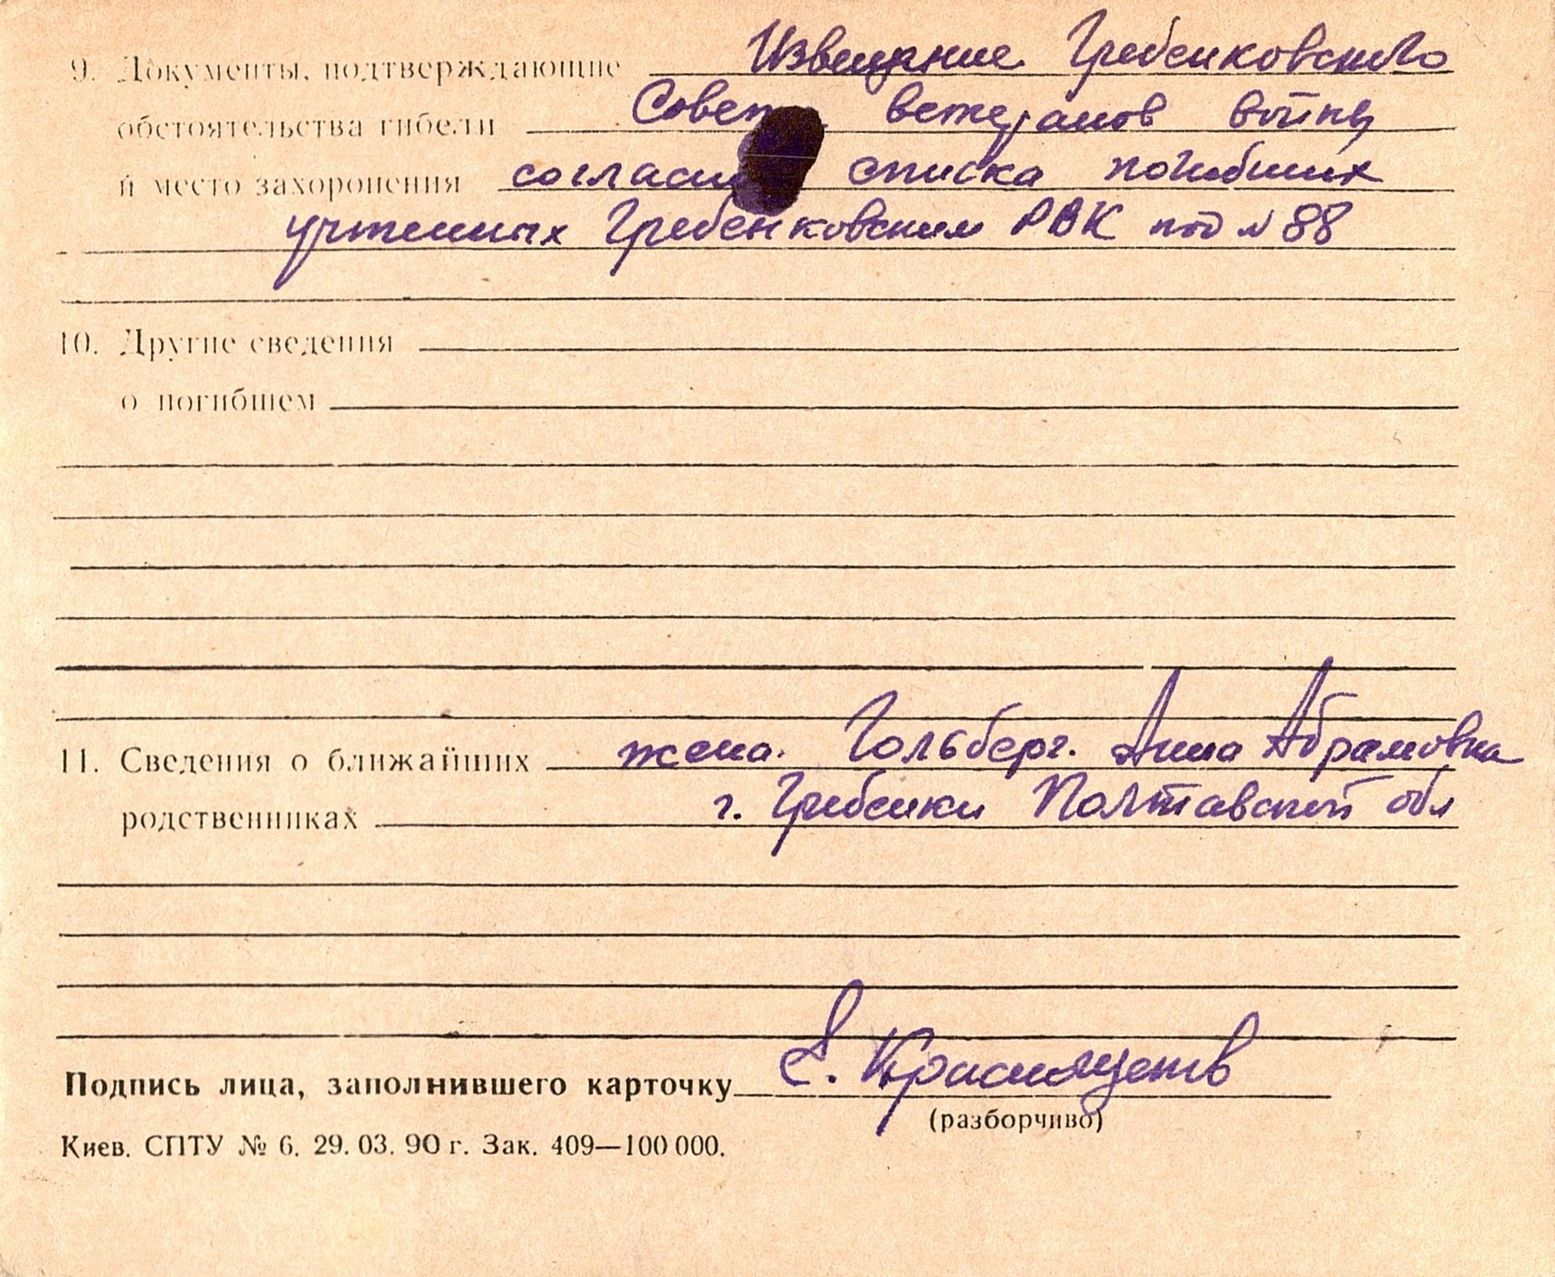 9. Документы, подтверждающие Извещение Гребенковского
обстоятельства гибели Совета ветеранов войны
и место захоронения согласно списка погибших
учтенных Гребенковским РВК под № 88
10. Другие сведения
о погибшем
11. Сведения о ближайших жена. Гольберг. Анна Абрамовна
родственниках г. Гребенки Полтавской обл
Подпись лица, заполнившего карточку Е.
(разборчиво)
Киев. СПТУ № 6. 29. 03. 90 г. Зак. 409—100 000.